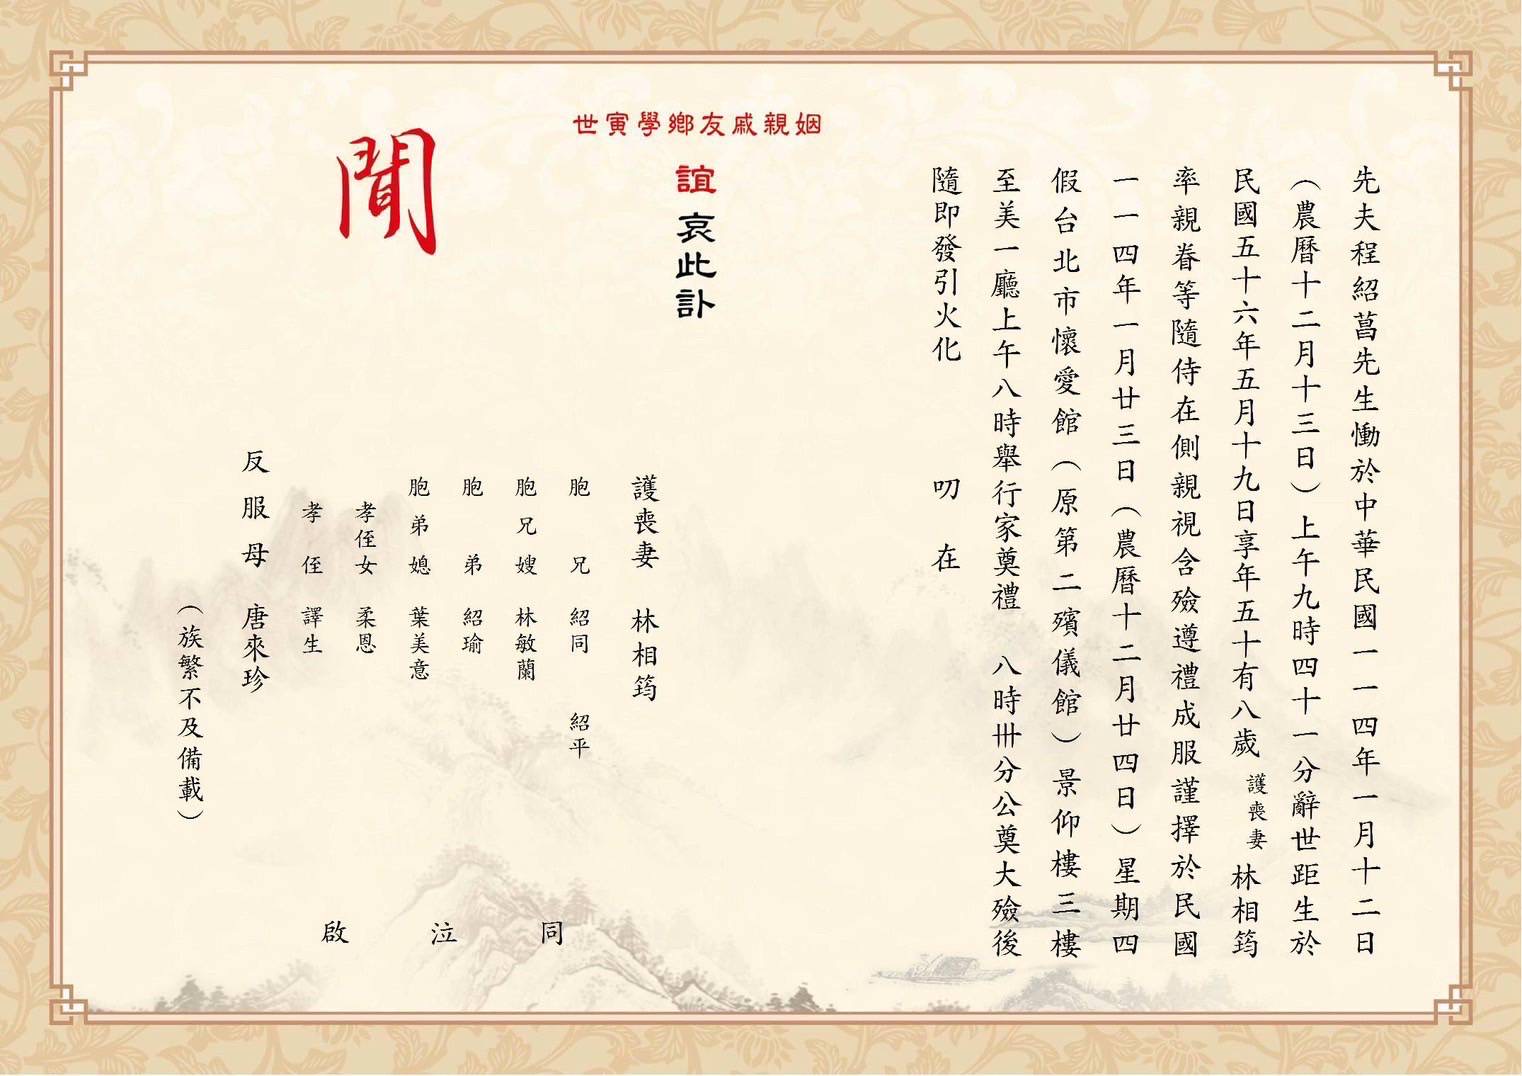 先夫程紹菖先生慟於中華民國一一四年一月十二日
（農曆十二月十三日）上午九時四十一分辭世距生於
民國五十六年五月十九日享年五十有八歲 護喪妻 林相筠
率親眷等隨侍在側親視含殮遵禮成服謹擇於民國
一一四年一月廿三日（農曆十二月廿四日）星期四
假台北市懷愛館（原第二殯儀館）景仰樓三樓
至美一廳上午八時舉行家奠禮 八時卅分公奠大殮後
隨即發引火化 叨在
姻親戚友鄉學寅世
誼 哀此訃
聞
護喪妻 林相筠
胞兄 紹同 紹平
胞兄嫂 林敏蘭
胞弟 紹瑜
胞弟媳 葉美意
孝侄女 柔恩
孝侄 譯生
反服母 唐來珍
（族繁不及備載）
同泣啟